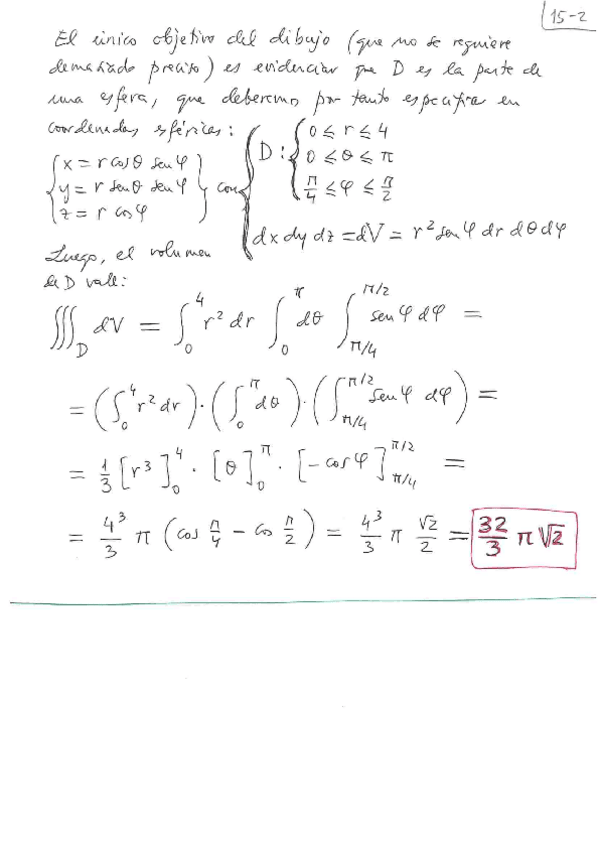 15-2
El único objetivo del dibujo (que no se requiere
demasiado preciso) es evidenciar que D es la parte de
una esfera, que deberemos por tanto especificar en
coordenadas esféricas:
{ x = r cos θ sen φ
y = r sen θ sen φ
z = r cos φ } con { D: { 0 ≤ r ≤ 4
0 ≤ θ ≤ π
π/4 ≤ φ ≤ π/2
dx dy dz = dV = r² sen φ dr dθ dφ
Luego, el volumen
de D vale:
∭_D dV = ∫_0^4 r² dr ∫_0^π dθ ∫_{π/4}^{π/2} sen φ dφ =
= (∫_0^4 r² dr) · (∫_0^π dθ) · (∫_{π/4}^{π/2} sen φ dφ) =
= 1/3 [r³]_0^4 · [θ]_0^π · [-cos φ]_{π/4}^{π/2} =
= 4³/3 π (cos π/4 - cos π/2) = 4³/3 π √2/2 = 32/3 π √2